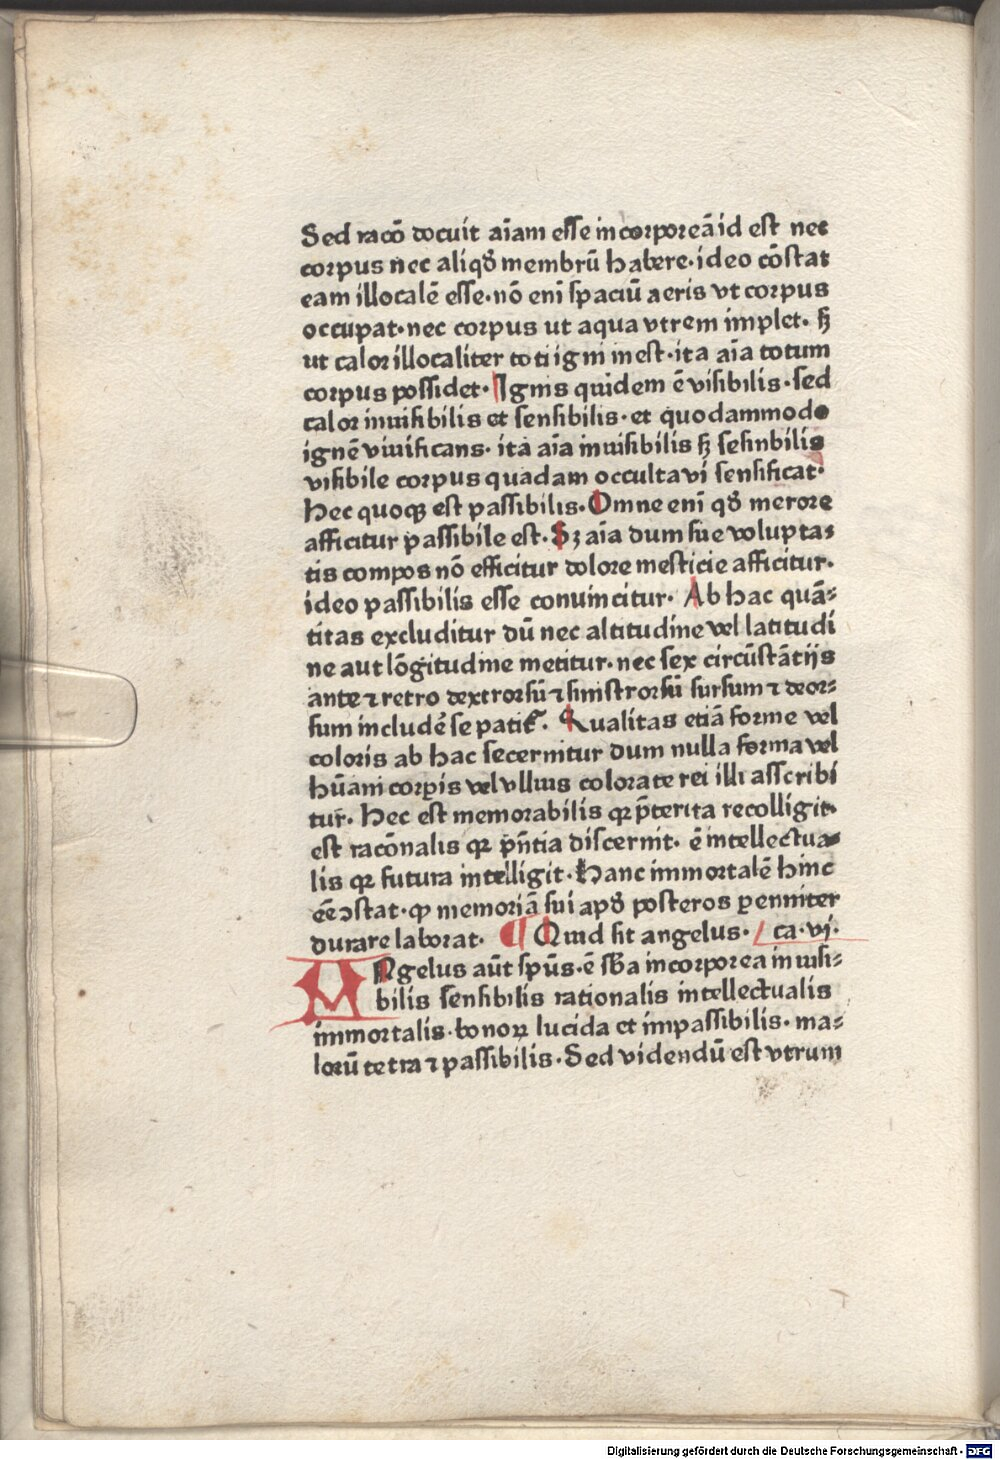 Sed racõ docuit aĩam esse incorporeã id est nec
corpus nec aliqđ membrũ habere·ideo cõstat
eam illocalẽ esse·nõ enĩ spaciũ aeris vt corpus
occupat·nec corpus ut aqua vtrem implet· sꝫ
ut calor illocaliter toti igni inest·ita aĩa totum
corpus possidet·Ignis quidem ẽ visibilis·sed
calor inuisibilis et sensibilis·et quodammodo
ignẽ viuificans· ita aĩa inuisibilis sꝫ sesinbilis
visibile corpus quadam occulta vi sensificat·
hec quoqꝫ est passibilis·Omne enĩ qđ merore
afficitur passibile est·Sꝫ aĩa dum sue volupta⸗
tis compos nõ efficitur dolore mesticie afficitur·
ideo passibilis esse conuincitur· Ab hac quã⸗
titas excluditur dũ nec altitudine vel latitudi
ne aut lõgitudine metitur·nec sex circũstãtijs
ante ⁊ retro dextrorsũ ⁊ sinistrorsũ sursum ⁊ deor⸗
sum includẽ se patit᷑· Qualitas etiã forme vel
coloris ab hac secernitur dum nulla forma vel
hũani corꝑis vel vllius colorate rei illi asscribi
tur· Hec est memorabilis qꝛ p̃terita recolligit·
est racõnalis qꝛ p̃ñtia discernit· ẽ intellectua⸗
lis qꝛ futura intelligit·Hanc immortalẽ hinc
eẽ ↄstat·ꝙ memoriã sui apđ posteros ꝑenniter
durare laborat· ¶ Quid sit angelus· ca·vj·
ANgelus aũt spũs·ẽ sƀa incorporea inuisi⸗
bilis sensibilis rationalis intellectualis
immortalis·bonoꝝ lucida et impassibilis·ma⸗
lorũ tetra ⁊ passibilis·Sed videndũ est vtrum
Digitalisierung gefördert durch die Deutsche Forschungsgemeinschaft - DFG